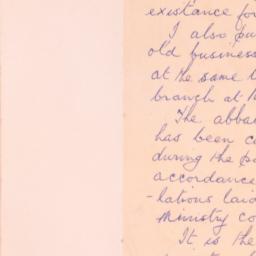 existance for
I also pu
old business
at the same t
branch at
The abba
has been c
during the p
accordance
-lations laid
Ministry co
It is the